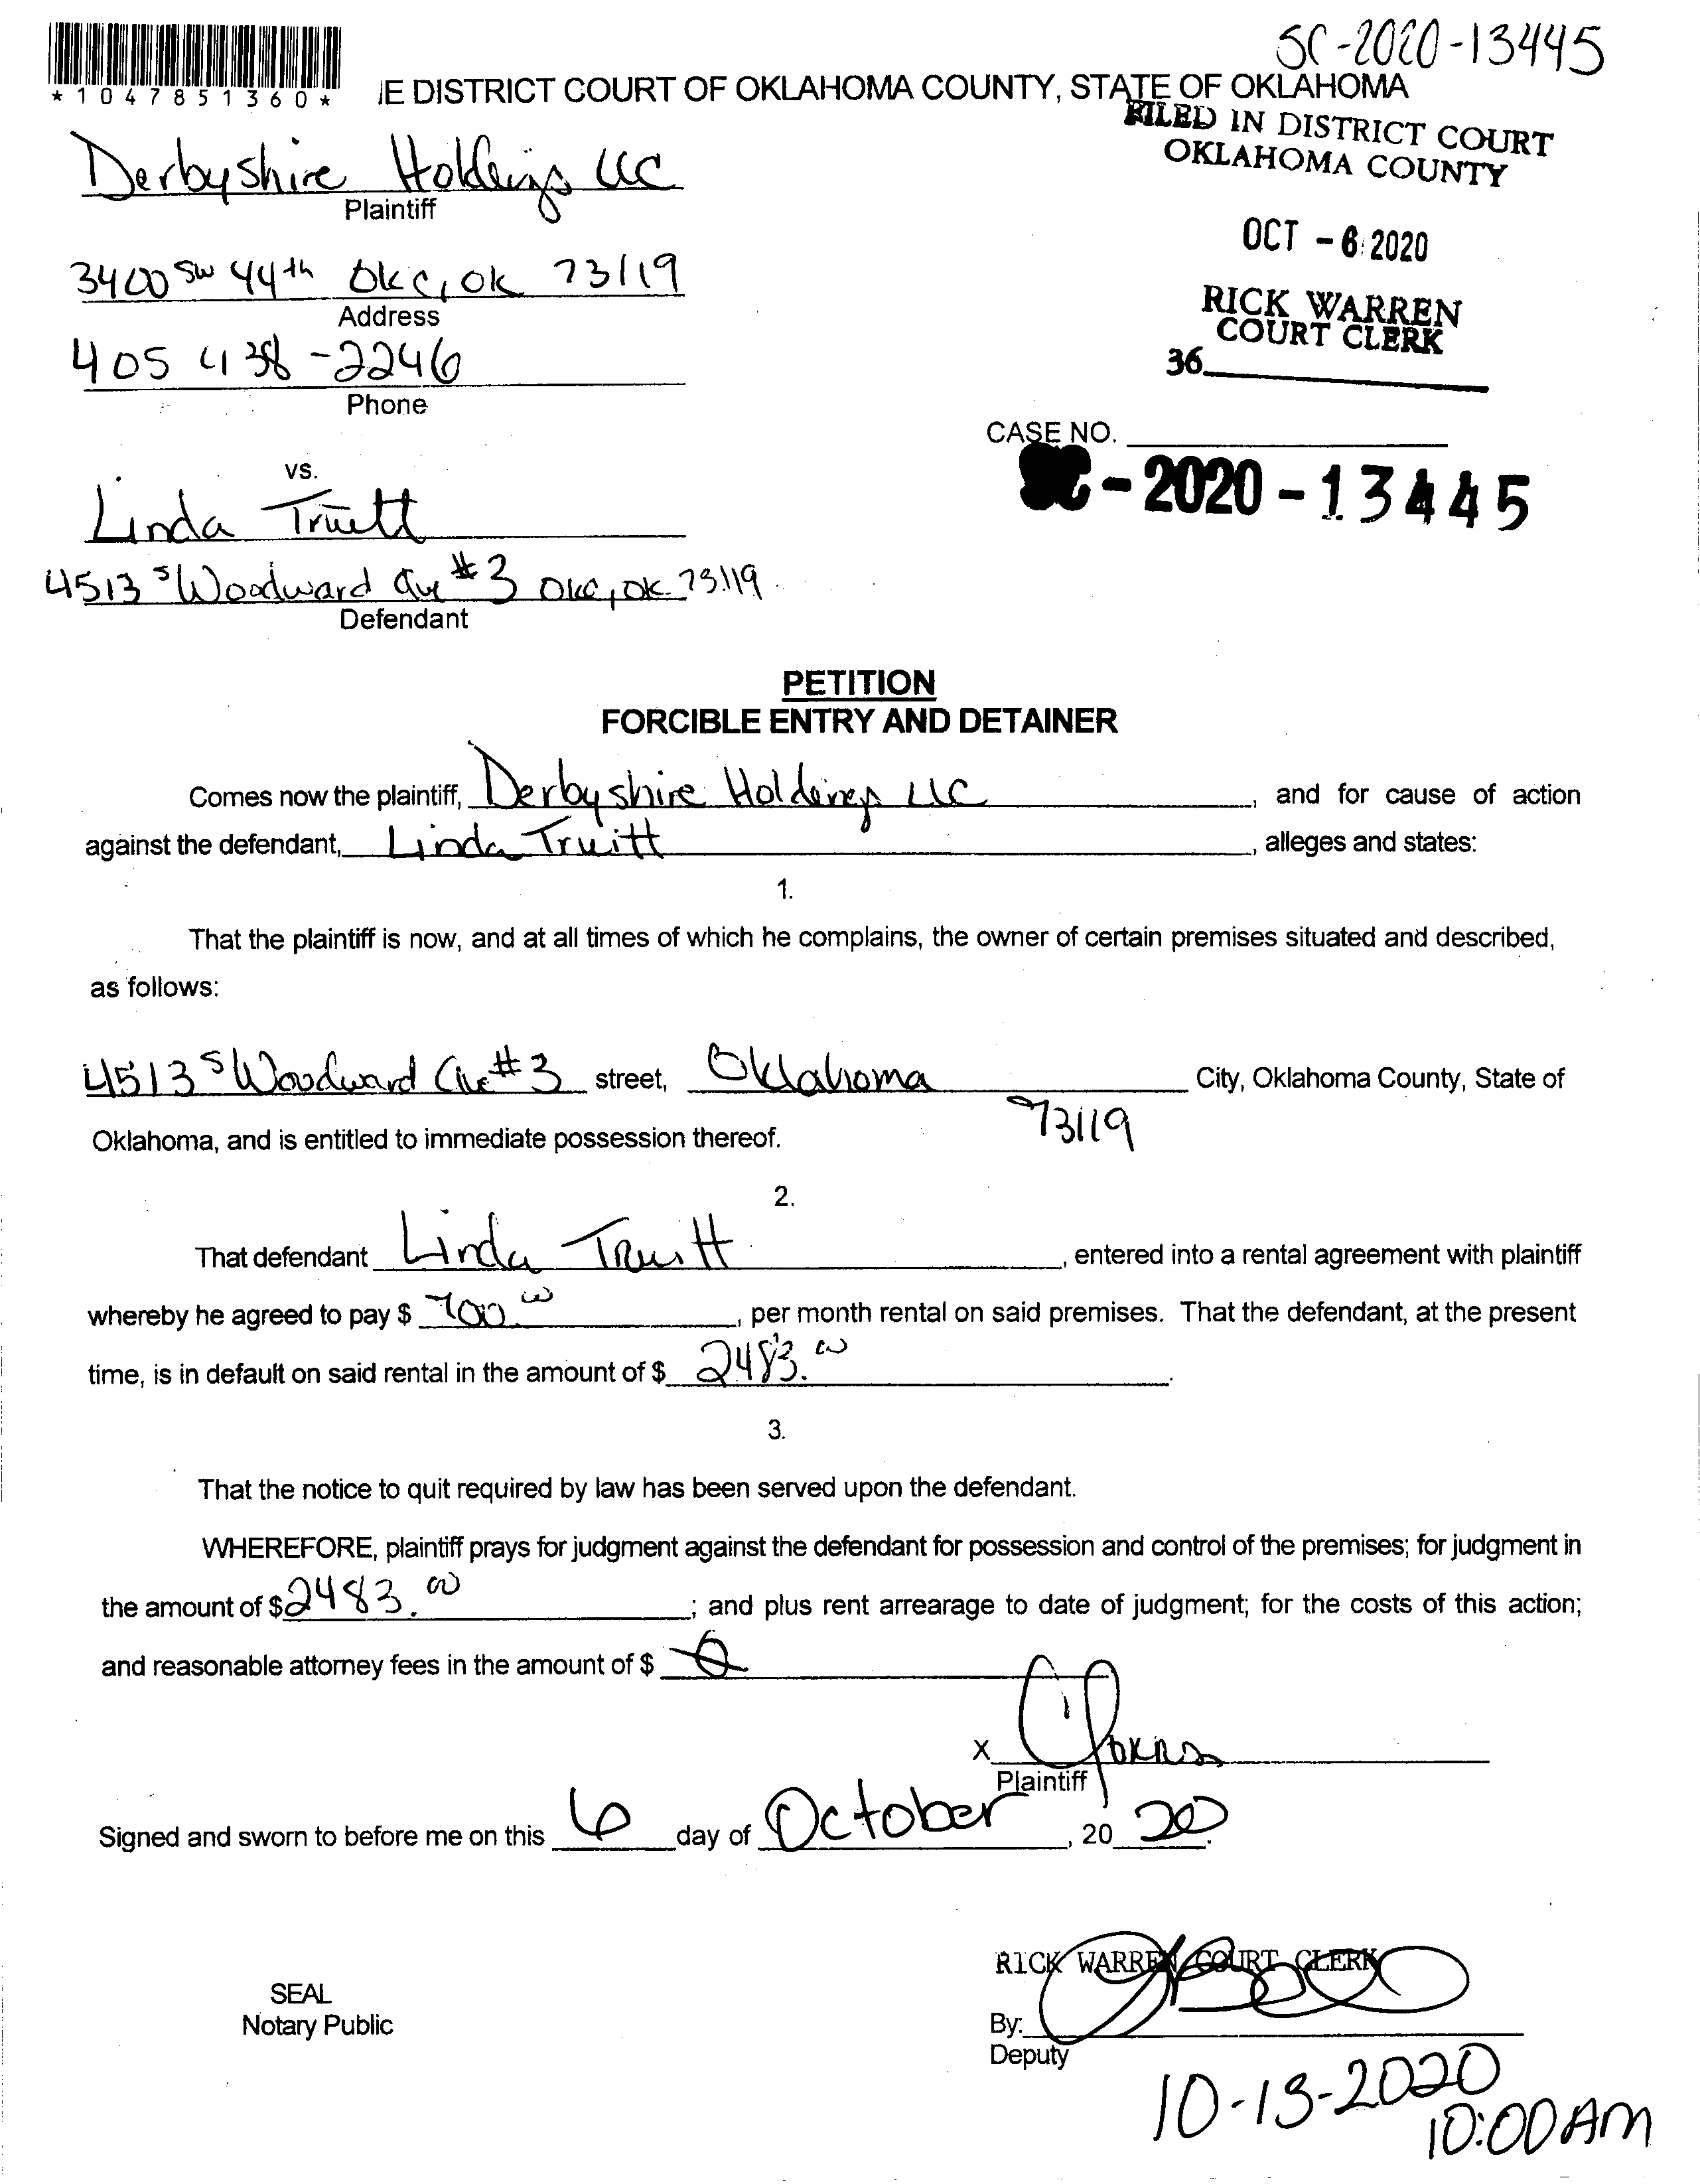 SC-2020-13445
*1047851360*
IE DISTRICT COURT OF OKLAHOMA COUNTY, STATE OF OKLAHOMA
FILED IN DISTRICT COURT
OKLAHOMA COUNTY
Derbyshire Holdings LLC
Plaintiff
OCT - 6 2020
3400 SW 44th OKC, OK 73119
Address
RICK WARREN
COURT CLERK
36
405 438-2246
Phone
CASE NO.
SC-2020-13445
vs.
Linda Truitt
4513 S Woodward Ave #3 OKC, OK 73119
Defendant
PETITION
FORCIBLE ENTRY AND DETAINER
Comes now the plaintiff, Derbyshire Holdings LLC, and for cause of action
against the defendant, Linda Truitt, alleges and states:
1.
That the plaintiff is now, and at all times of which he complains, the owner of certain premises situated and described,
as follows:
4513 S Woodward Ave #3 street, Oklahoma City, Oklahoma County, State of
73119
Oklahoma, and is entitled to immediate possession thereof.
2.
That defendant Linda Truitt, entered into a rental agreement with plaintiff
whereby he agreed to pay $ 700.00, per month rental on said premises. That the defendant, at the present
time, is in default on said rental in the amount of $ 2483.00.
3.
That the notice to quit required by law has been served upon the defendant.
WHEREFORE, plaintiff prays for judgment against the defendant for possession and control of the premises; for judgment in
the amount of $ 2483.00; and plus rent arrearage to date of judgment; for the costs of this action;
and reasonable attorney fees in the amount of $ 0
X
Plaintiff
Signed and sworn to before me on this 6 day of October, 20 20.
RICK WARREN COURT CLERK
SEAL
Notary Public
By:
Deputy
10-13-2020
10:00 AM